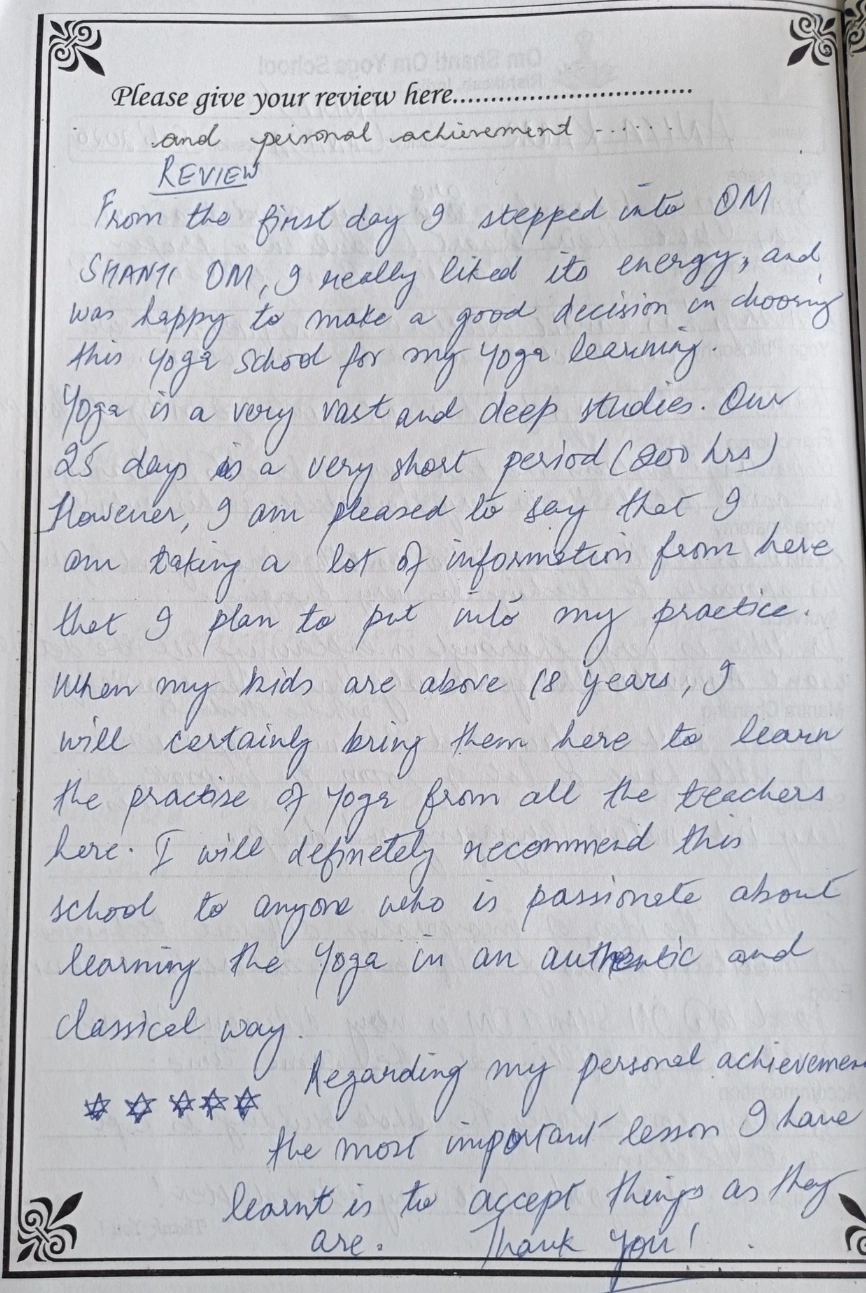 Please give your review here..............................
and personal achievement ......
REVIEW
From the first day I stepped into OM
SHANTI OM, I really liked its energy, and
was happy to make a good decision in choosing
this Yoga school for my Yoga learning.
Yoga is a very vast and deep studies. Our
25 days is a very short period (200 hrs)
However, I am pleased to say that I
am taking a lot of information from here
that I plan to put into my practice.
When my kids are above 18 years, I
will certainly bring them here to learn
the practise of Yoga from all the teachers
here. I will definetely recommend this
school to anyone who is passionate about
learning the Yoga in an authentic and
classical way.
Regarding my personal achievemen
the most important lesson I have
learnt is to accept things as they
are. Thank you!